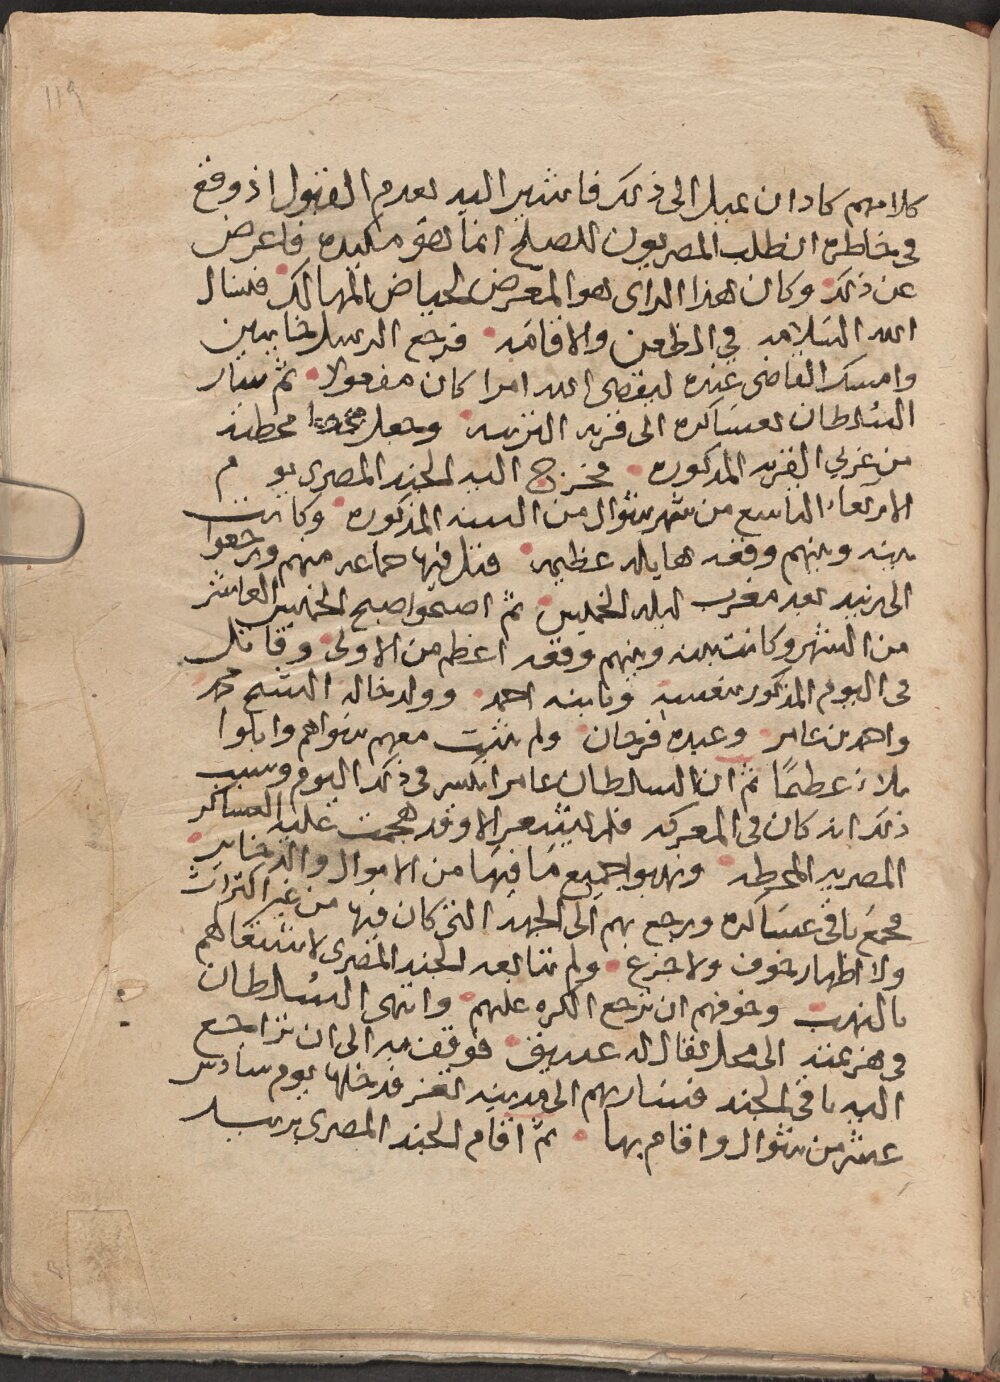 119
كلامهم كاد ان يميل الى ذلك فاشير اليه بعدم القبول اذ وقع
في خاطره ان طلب المصريون للصلح انما هو مكيده فاعرض
عن ذلك وكان هذا الراى هو المعرض لحياض المهالك فنسال
الله السلامه في الظعن والاقامه فرجع الرسل خايبين
وامسك القاضى عنده ليقضى الله امرا كان مفعولا ثم سار
السلطان بعساكره الى قريه التربيه وجعل محطته
من غربي القريه المذكوره فخرج اليه الجند المصرى يوم
الاربعاء التاسع من شهر شوال من السنه المذكوره وكانت
بينه وبينهم وقعه هايله عظيمه قتل فيها جماعه منهم ورجعوا
الى زبيد بعد مغرب ليله الخميس ثم اصبحوا صبح الخميس العاشر
من الشهر وكانت بينه وبينهم وقعه اعظم من الاولى وقاتل
فى اليوم المذكور بنفسه وبابنه احمد وولد خاله الشيخ محمد
واحمد بن عامر وعبده فرحان ولم يثبت معهم سواهم وابلوا
بلاءً عظيمًا ثم ان السلطان عامر انكسر فى ذلك اليوم وسبب
ذلك انه كان فى المعركه فلم يشعر الا وقد هجمت عليه العساكر
المصريه المحطه ونهبوا جميع ما فيها من الاموال والذخاير
فجمع باقى عساكره ورجع بهم الى الجهه التى كان فيها من غير اكتراث
ولا اظهار خوف ولا جزع ولم يتابعه الجند المصرى لاشتغالهم
بالنهب وخوفهم ان ترجع الكره عليهم وانتهى السلطان
فى هزيمته الى محل يقال له عريق فوقف به الى ان تراجع
اليه باقى الجند فسار بهم الى مدينه تعز فدخلها يوم سادس
عشر من شوال واقام بها ثم اقام الجند المصرى بزبيد